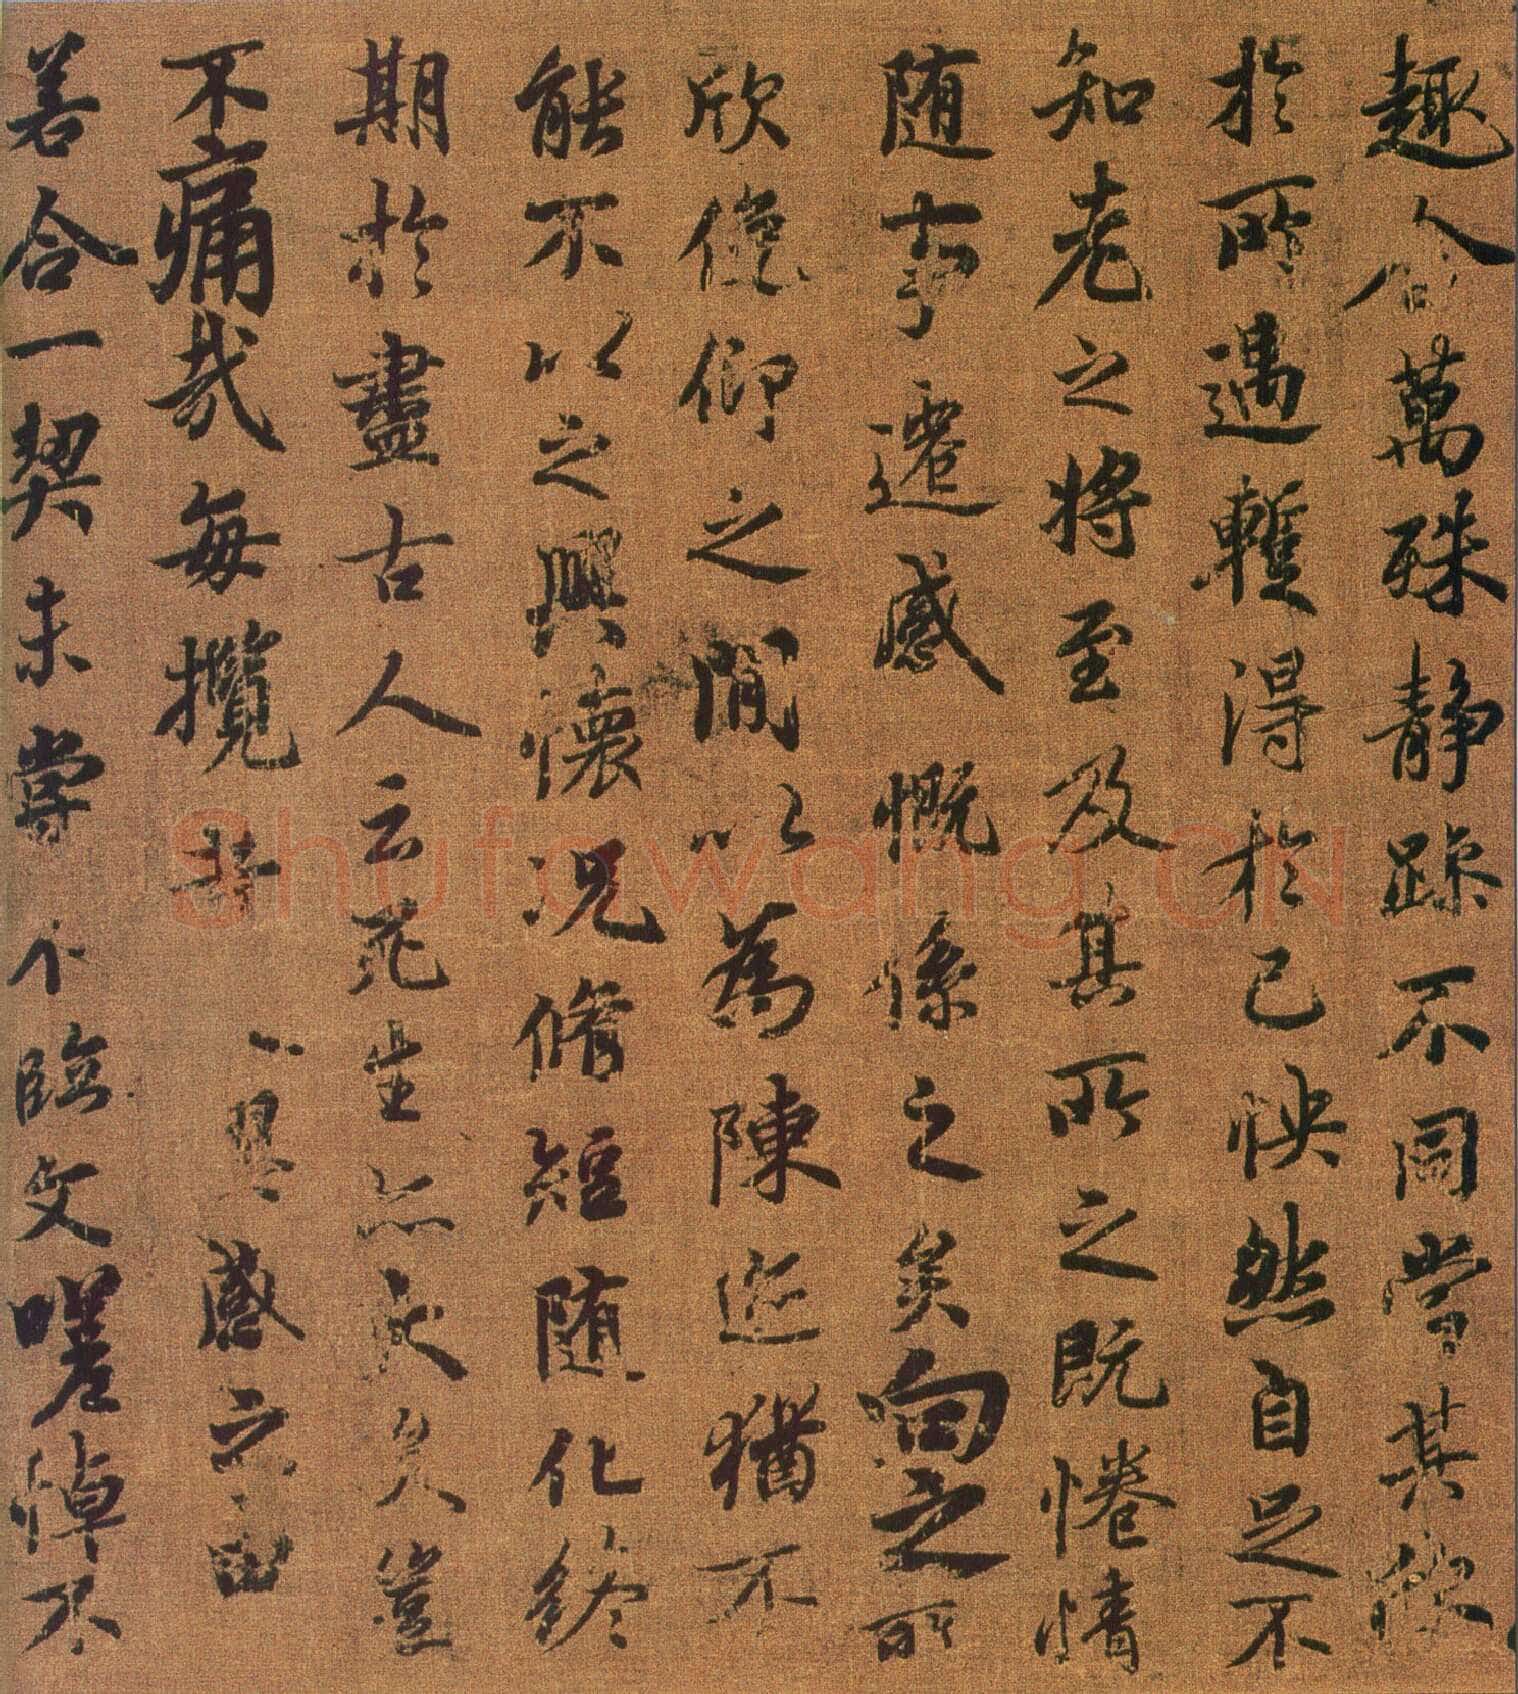 趣舍萬殊静躁不同當其欣
於所遇蹔得於己怏然自足不
知老之將至及其所之既惓情
随事遷感慨係之矣向之所
欣俛仰之閒以為陳迹猶不
能不以之興懷況脩短随化終
期於盡古人云死生亦大矣豈
不痛哉每攬昔人興感之由
若合一契未嘗不臨文嗟悼不
Shufawang.CN